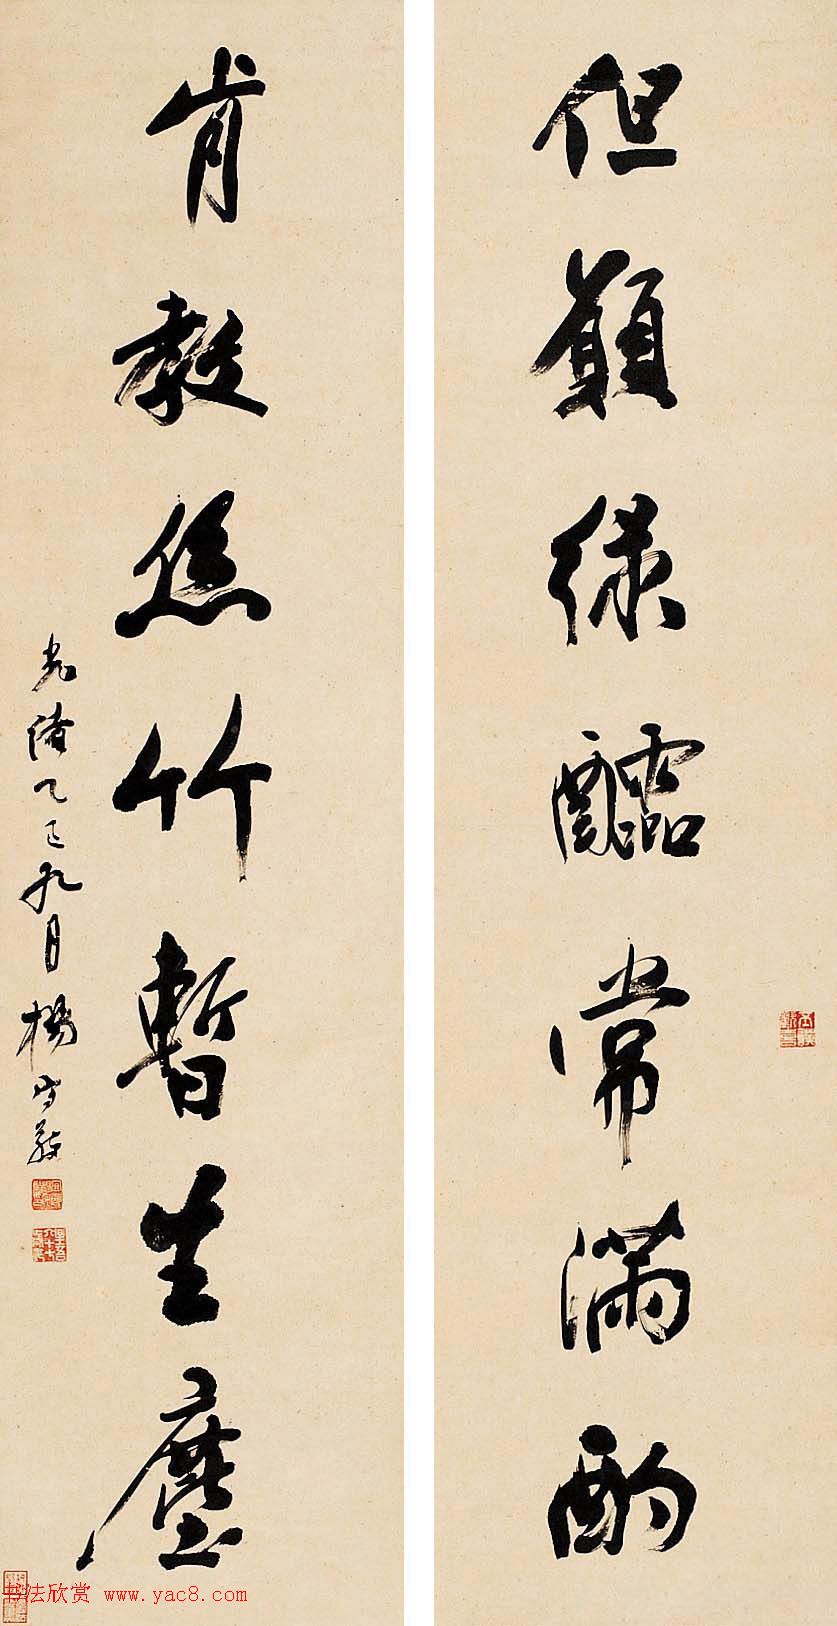 但願綠醽常滿酌
肯教絲竹暫生塵
光緒乙巳九月楊守敬
书法欣赏 www.yac8.com